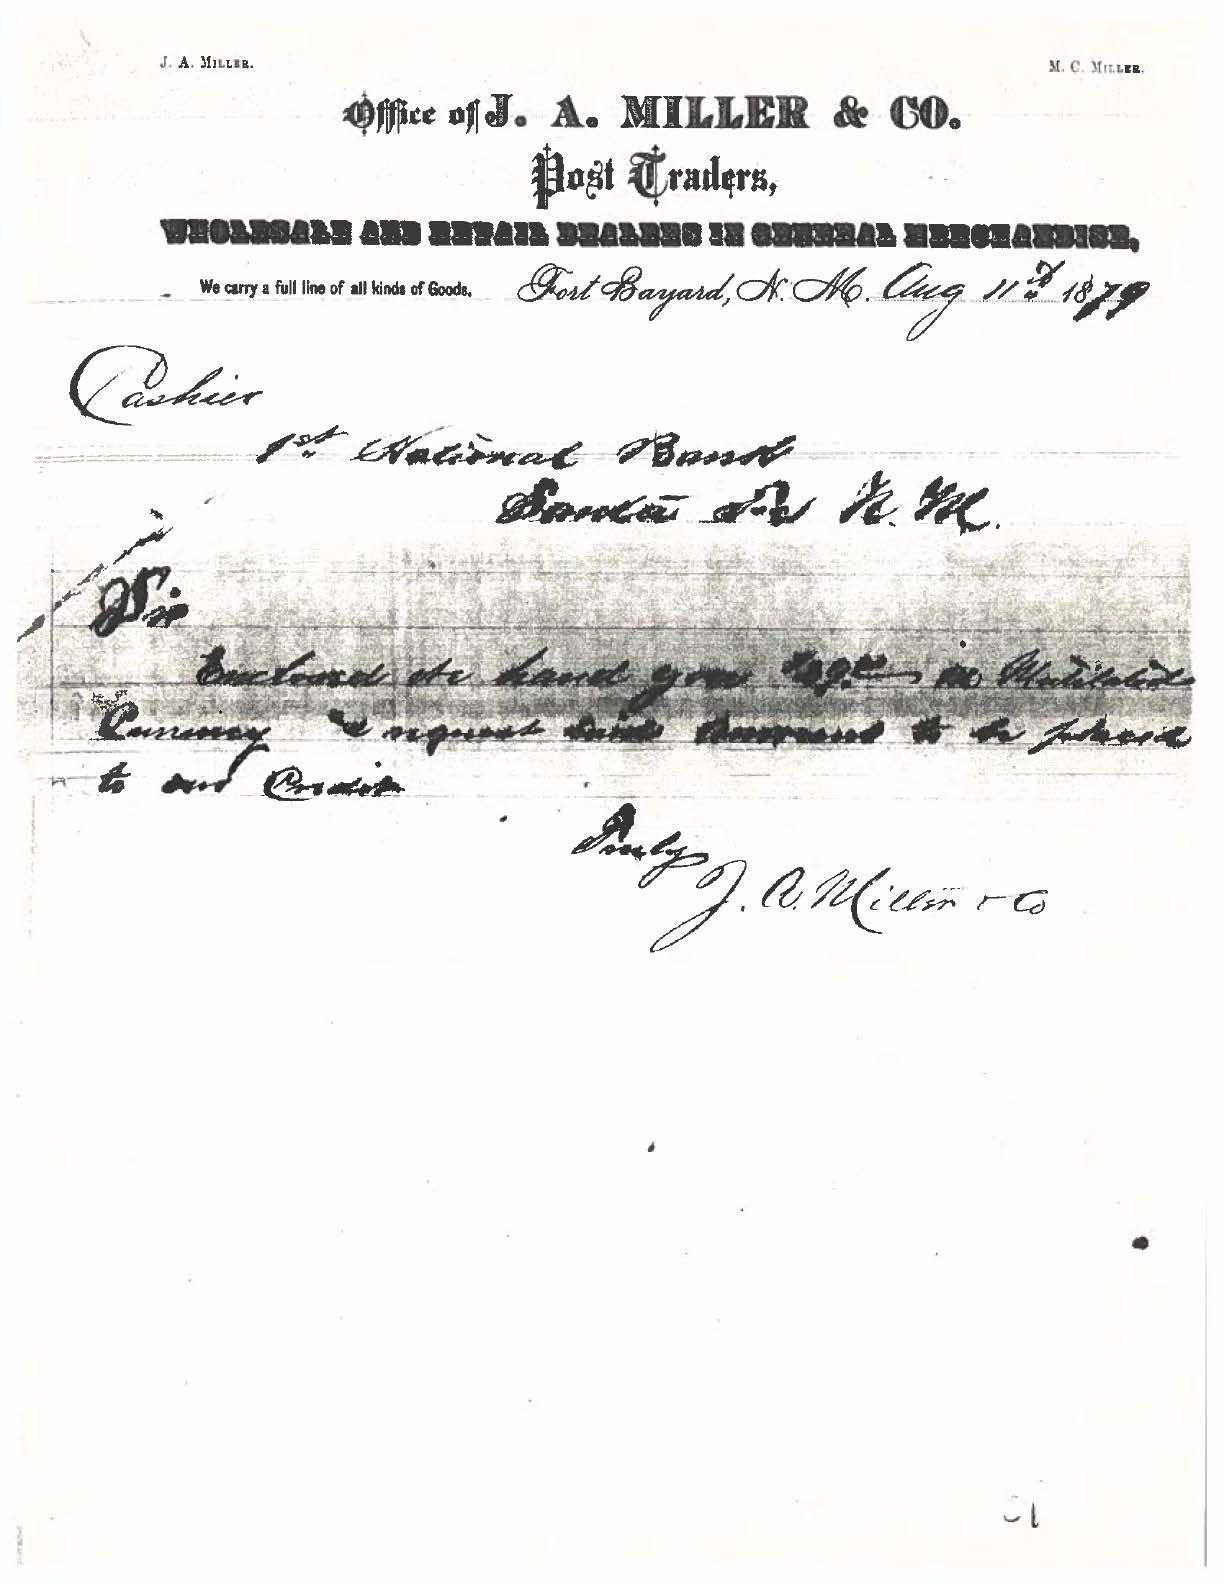 J. A. MILLER.
M. C. MILLER.
Office of J. A. MILLER & CO.
Post Traders,
WHOLESALE AND RETAIL DEALERS IN GENERAL MERCHANDISE,
We carry a full line of all kinds of Goods.
Fort Bayard, N. M. Aug 11th 1879
Cashier
1st National Bank
Santa Fe N. M.
Sir
Enclosed we hand you in Mutilated
Currency & request said amount to be placed
to our Credit
Truly
J. A. Miller & Co